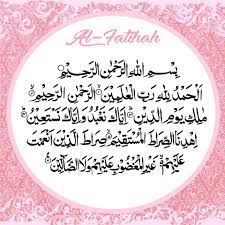 Al-Fatihah
بِسْمِ اللهِ الرَّحْمٰنِ الرَّحِيْمِ
اَلْحَمْدُ لِلّٰهِ رَبِّ الْعٰلَمِيْنَ ۝ الرَّحْمٰنِ الرَّحِيْمِ ۝
مٰلِكِ يَوْمِ الدِّيْنِ ۝ اِيَّاكَ نَعْبُدُ وَاِيَّاكَ نَسْتَعِيْنُ ۝
اِهْدِنَا الصِّرَاطَ الْمُسْتَقِيْمَ ۝ صِرَاطَ الَّذِيْنَ اَنْعَمْتَ
عَلَيْهِمْ ۝ غَيْرِ الْمَغْضُوْبِ عَلَيْهِمْ وَلَا الضَّآلِّيْنَ ۝